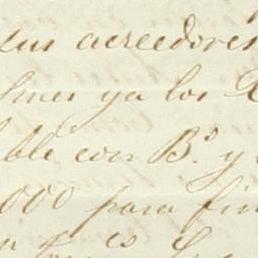 sus acreedores
fines ya los
ble con B.º y
000 para fin
es